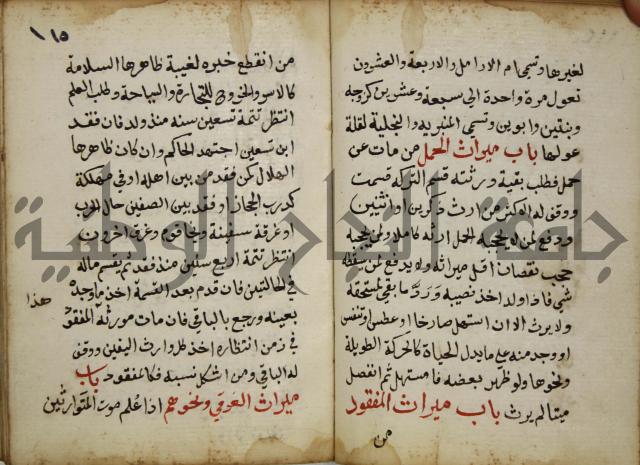 لغيرها وتسمى ام الارامل والاربعة والعشرون
تعول مرة واحدة الى سبعة وعشرين كزوجة
وبنتين وابوين وتسمى المنبرية والبخيلة لقلة
عولها باب ميراث الحمل من مات عن
حمل فطلب بقية ورثته قسم التركة قسمت
ووقف له الاكثر من ارث ذكرين او انثيين
ودفع لمن لا يحجبه الحمل ارثه كاملا ولمن يحجبه
حجب نقصان اقل ميراثه ولا يدفع لمن يسقطه
شي فاذا ولد اخذ نصيبه ورد ما بقي لمستحقه
ولا يرث الا ان استهل صارخا او عطس او تنفس
او وجد منه ما يدل الحياة كالحركة الطويلة
ونحوها ولو ظهر بعضه فاستهل ثم انفصل
ميتا لم يرث باب ميراث المفقود
من
١١٥
من انقطع خبره لغيبة ظاهرها السلامة
كالاسر والخروج للتجارة والسياحة ولطلب العلم
انتظر تتمة تسعين سنة منذ ولد فان فقد
ابن تسعين اجتهد الحاكم وان كان ظاهرها
الهلاك كمن فقد من بين اهله او في مهلكة
كدرب الحجاز او فقد بين الصفين حال الحرب
او غرقة سفينة ونجا قوم وغرق اخرون
انتظر تتمة اربع سنين منذ فقد ثم يقسم ماله
في الحالتين فان قدم بعد القسمة اخذ ما وجده
بعينه ورجع بالباقي فان مات مورثه المفقود
هذا
في زمن انتظاره اخذ كل وارث اليقين ووقف
له الباقي ومن اشكل نسبه فكالمفقود باب
ميراث الغرقى ونحوهم اذا علم موت المتوارثين
جامعة النجاح الوطنية